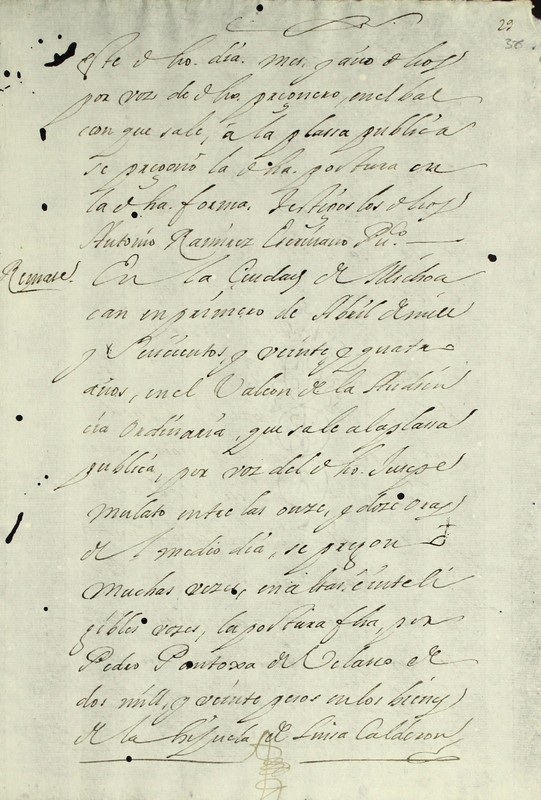 29
38
este dho. día. mes, y año dhos
por voz de dho. pregonero, en el bal
con que sale, a la plassa publica
se pregonó la dha. postura en
la dha. forma. testigos los dhos
Antonio Ramirez Escrivano Puco.
Remate. En la Ciudad de Michoa
can en primero de Abril de mill
y Seiscientos, y veinte, y quatro
años, en el Valcon de la Audien
cia ordinaria, que sale a la plassa
publica, por voz del dho. Juºpe
mulato entre las onze, y doze oras
del medio día, se pregonó
muchas vezes, en altas. é inteli
gibles vozes, la postura fha, por
Pedro Pantoxa de
dos mill, y veinte pesos en los bienes
de la hijuela de Luisa Calderon